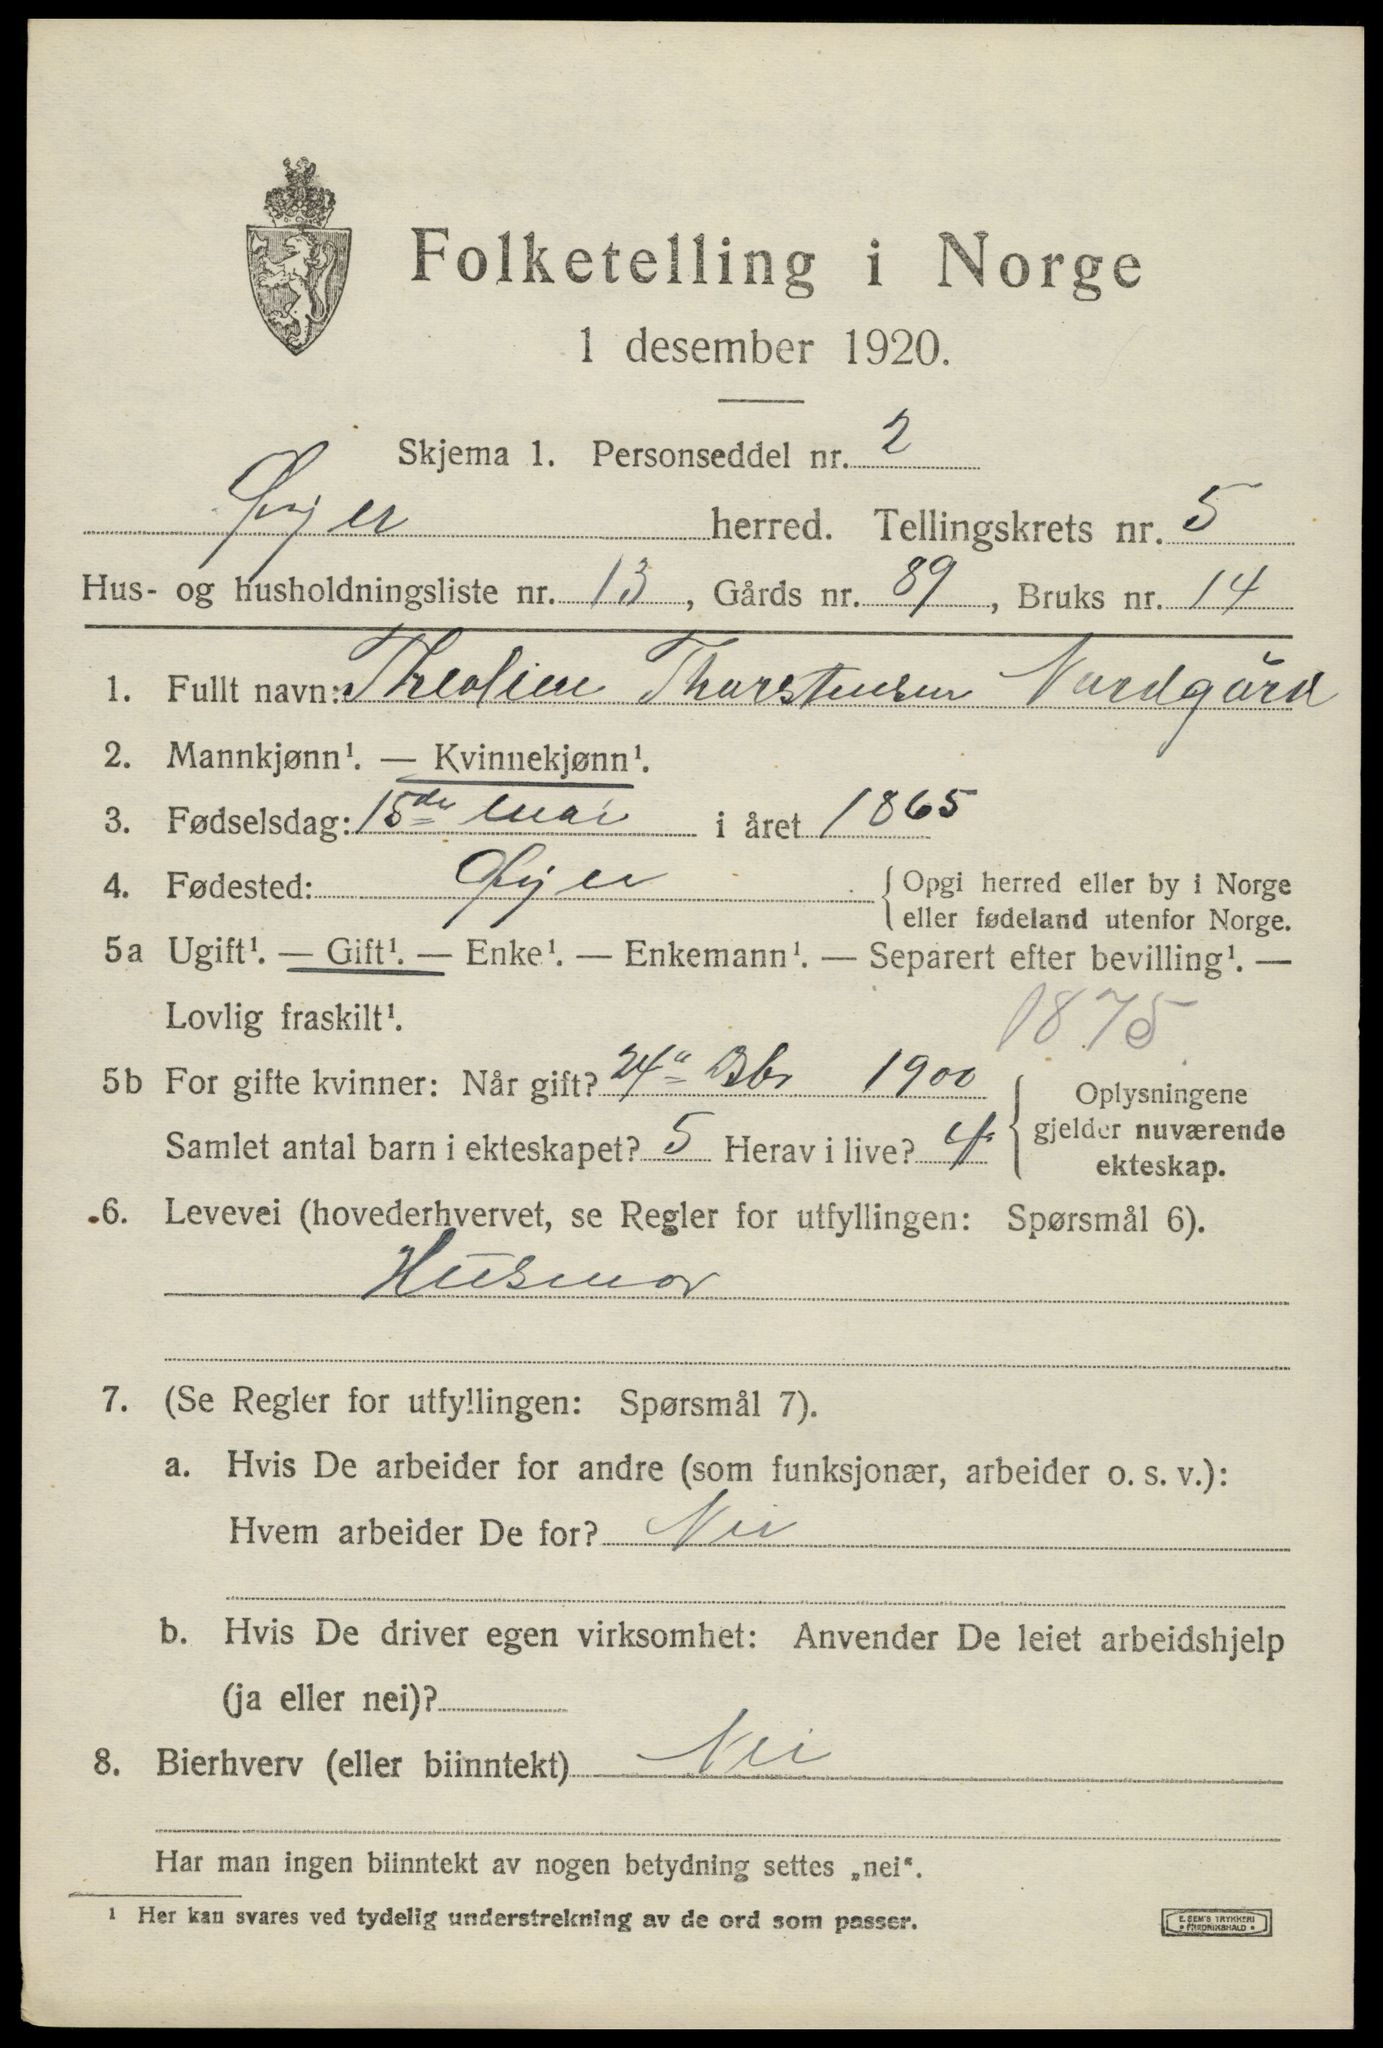 Folketelling i Norge
1 desember 1920.
Skjema 1. Personseddel nr. 2
Øyer herred. Tellingskrets nr. 5
Hus- og husholdningsliste nr. 13, Gårds nr. 89, Bruks nr. 14
1. Fullt navn: Theoline Thorstensen Nordgård
2. Mannkjønn¹. — Kvinnekjønn¹.
3. Fødselsdag: 15de mai i året 1865
4. Fødested: Øyer { Opgi herred eller by i Norge
eller fødeland utenfor Norge.
5a Ugift¹. — Gift¹. — Enke¹. — Enkemann¹. — Separert efter bevilling¹. —
Lovlig fraskilt¹.
1875
5b For gifte kvinner: Når gift? 24 Dbr 1900
Samlet antal barn i ekteskapet? 5 Herav i live? 4
{ Oplysningene
gjelder nuværende
ekteskap.
6. Levevei (hovederhvervet, se Regler for utfyllingen: Spørsmål 6).
Husmor
7. (Se Regler for utfyllingen: Spørsmål 7).
a. Hvis De arbeider for andre (som funksjonær, arbeider o. s. v.):
Hvem arbeider De for? Nei
b. Hvis De driver egen virksomhet: Anvender De leiet arbeidshjelp
(ja eller nei)?
8. Bierhverv (eller biinntekt) Nei
Har man ingen biinntekt av nogen betydning settes „nei“.
¹ Her kan svares ved tydelig understrekning av de ord som passer.
E. SEM'S TRYKKERI
• FREDRIKSHALD •